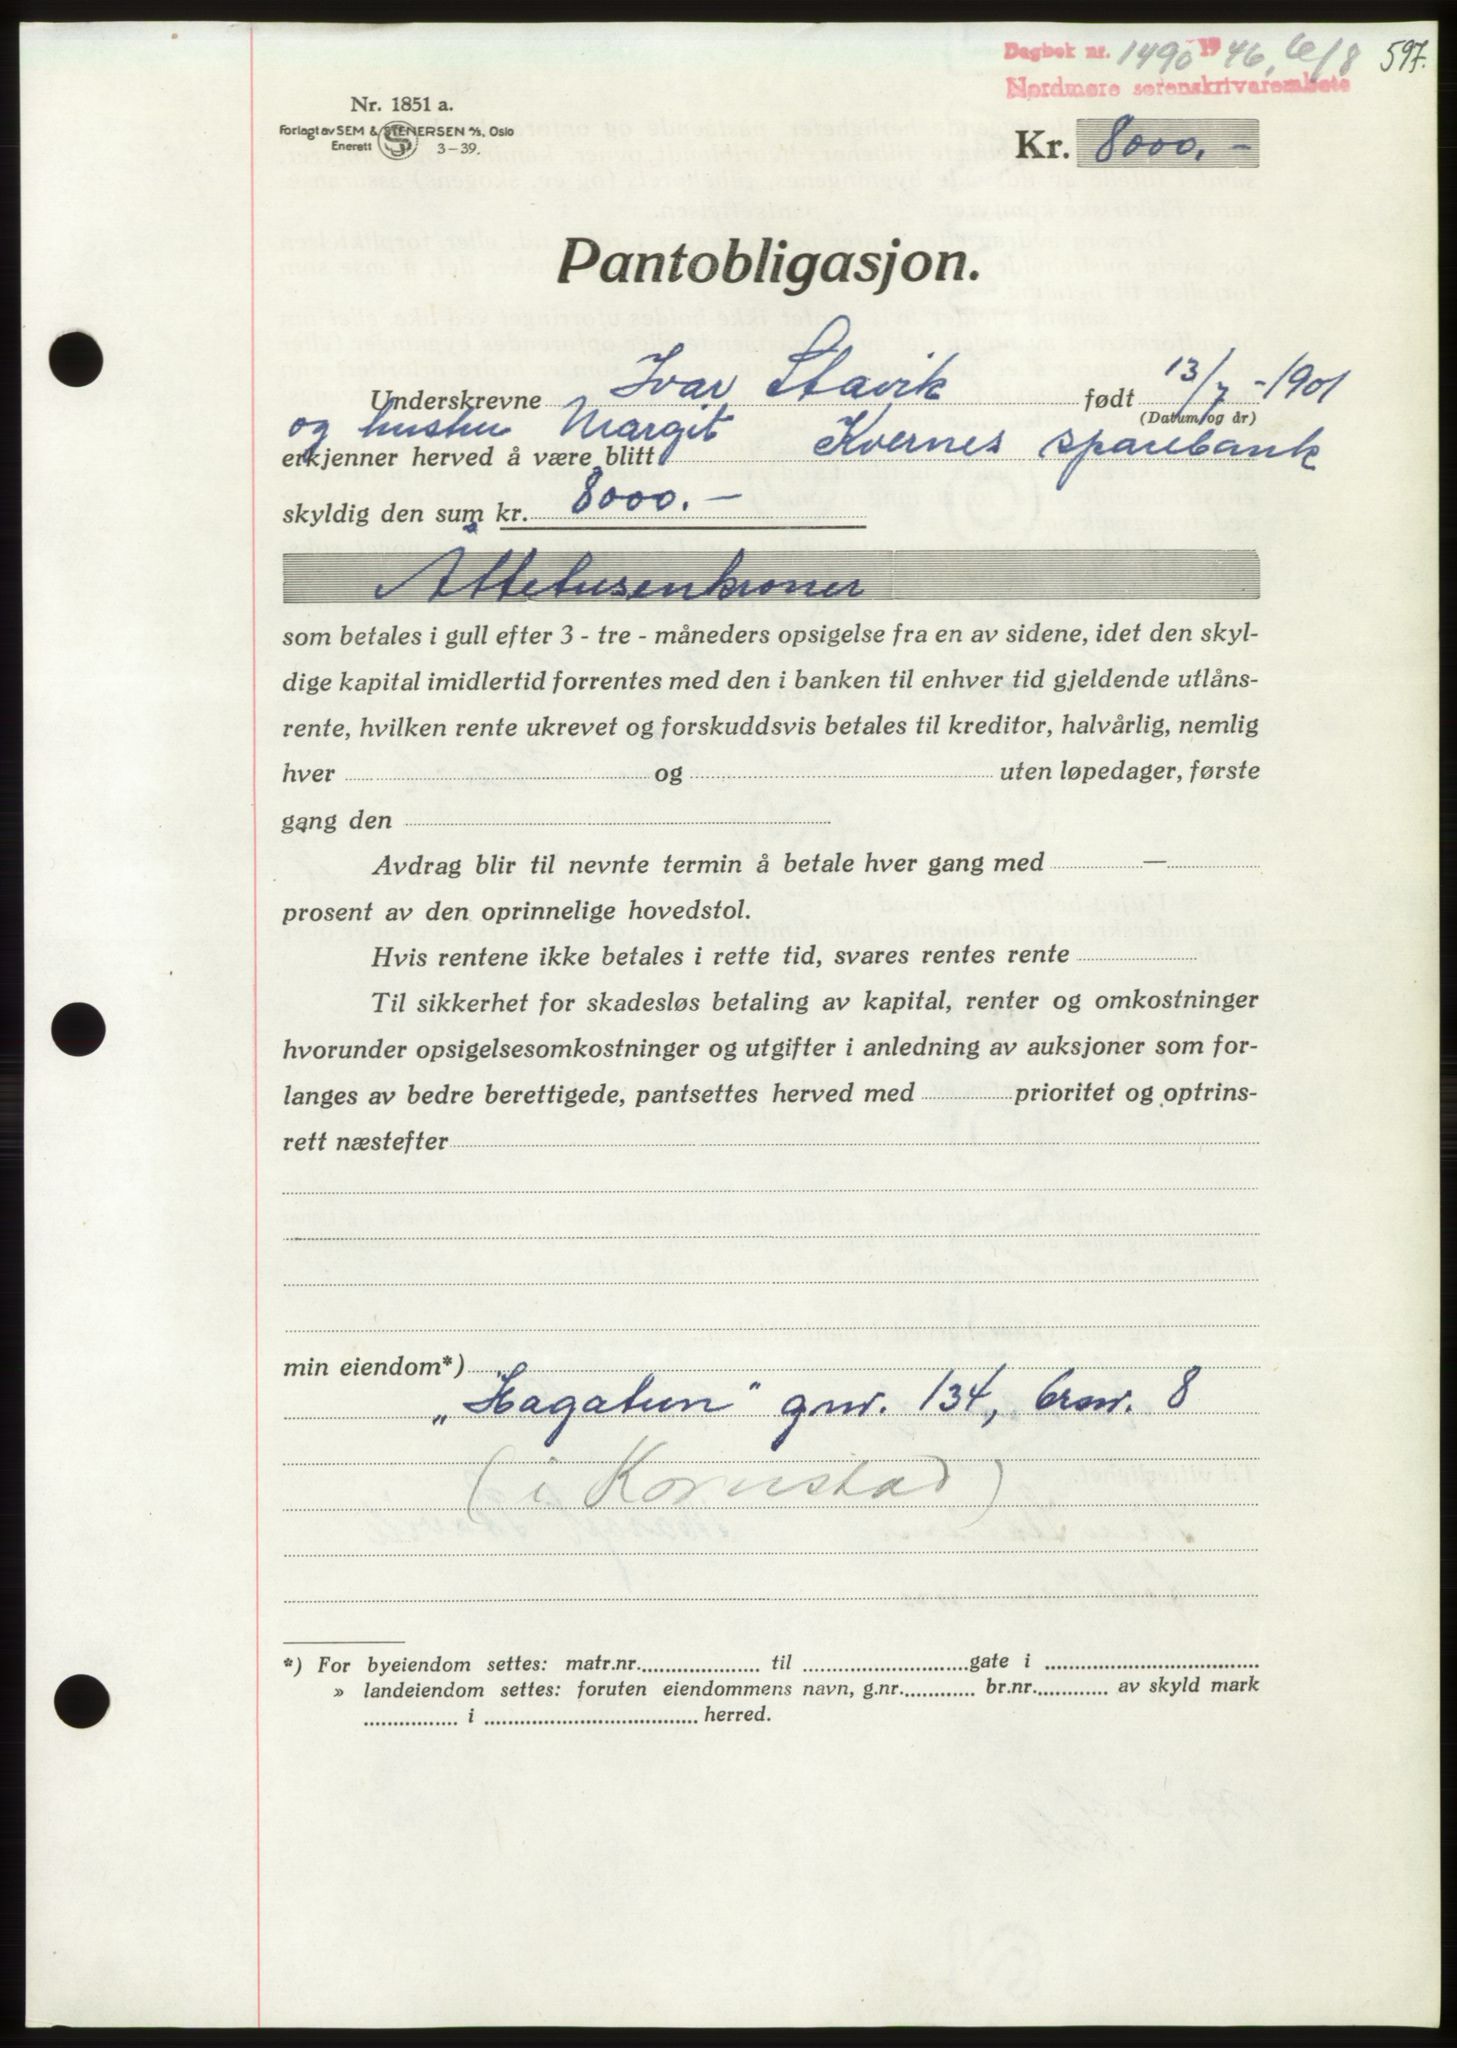 Dagbok nr. 1490 1946, 6/8 597.
Nordmøre sorenskrivarembete
Nr. 1851 a.
Forlagt av SEM & STENERSEN A/S, Oslo
Enerett 3-39.
Kr. 8000.-
Pantobligasjon.
Underskrevne Ivar Stavik født 13/7 - 1901
(Datum og år)
og hustru Margit Kvernes sparebank
erkjenner herved å være blitt
skyldig den sum kr. 8000.-
Åttetusenkroner
som betales i gull efter 3 - tre - måneders opsigelse fra en av sidene, idet den skyl-
dige kapital imidlertid forrentes med den i banken til enhver tid gjeldende utlåns-
rente, hvilken rente ukrevet og forskuddsvis betales til kreditor, halvårlig, nemlig
hver og uten løpedager, første
gang den
Avdrag blir til nevnte termin å betale hver gang med —
prosent av den oprinnelige hovedstol.
Hvis rentene ikke betales i rette tid, svares rentes rente
Til sikkerhet for skadesløs betaling av kapital, renter og omkostninger
hvorunder opsigelsesomkostninger og utgifter i anledning av auksjoner som for-
langes av bedre berettigede, pantsettes herved med prioritet og optrins-
rett næstefter
min eiendom*)
„Hagatun" gnr. 134, brnr. 8
(i Kornstad)
*) For byeiendom settes: matr.nr. til gate i
» landeiendom settes: foruten eiendommens navn, g.nr. br.nr. av skyld mark
i herred.